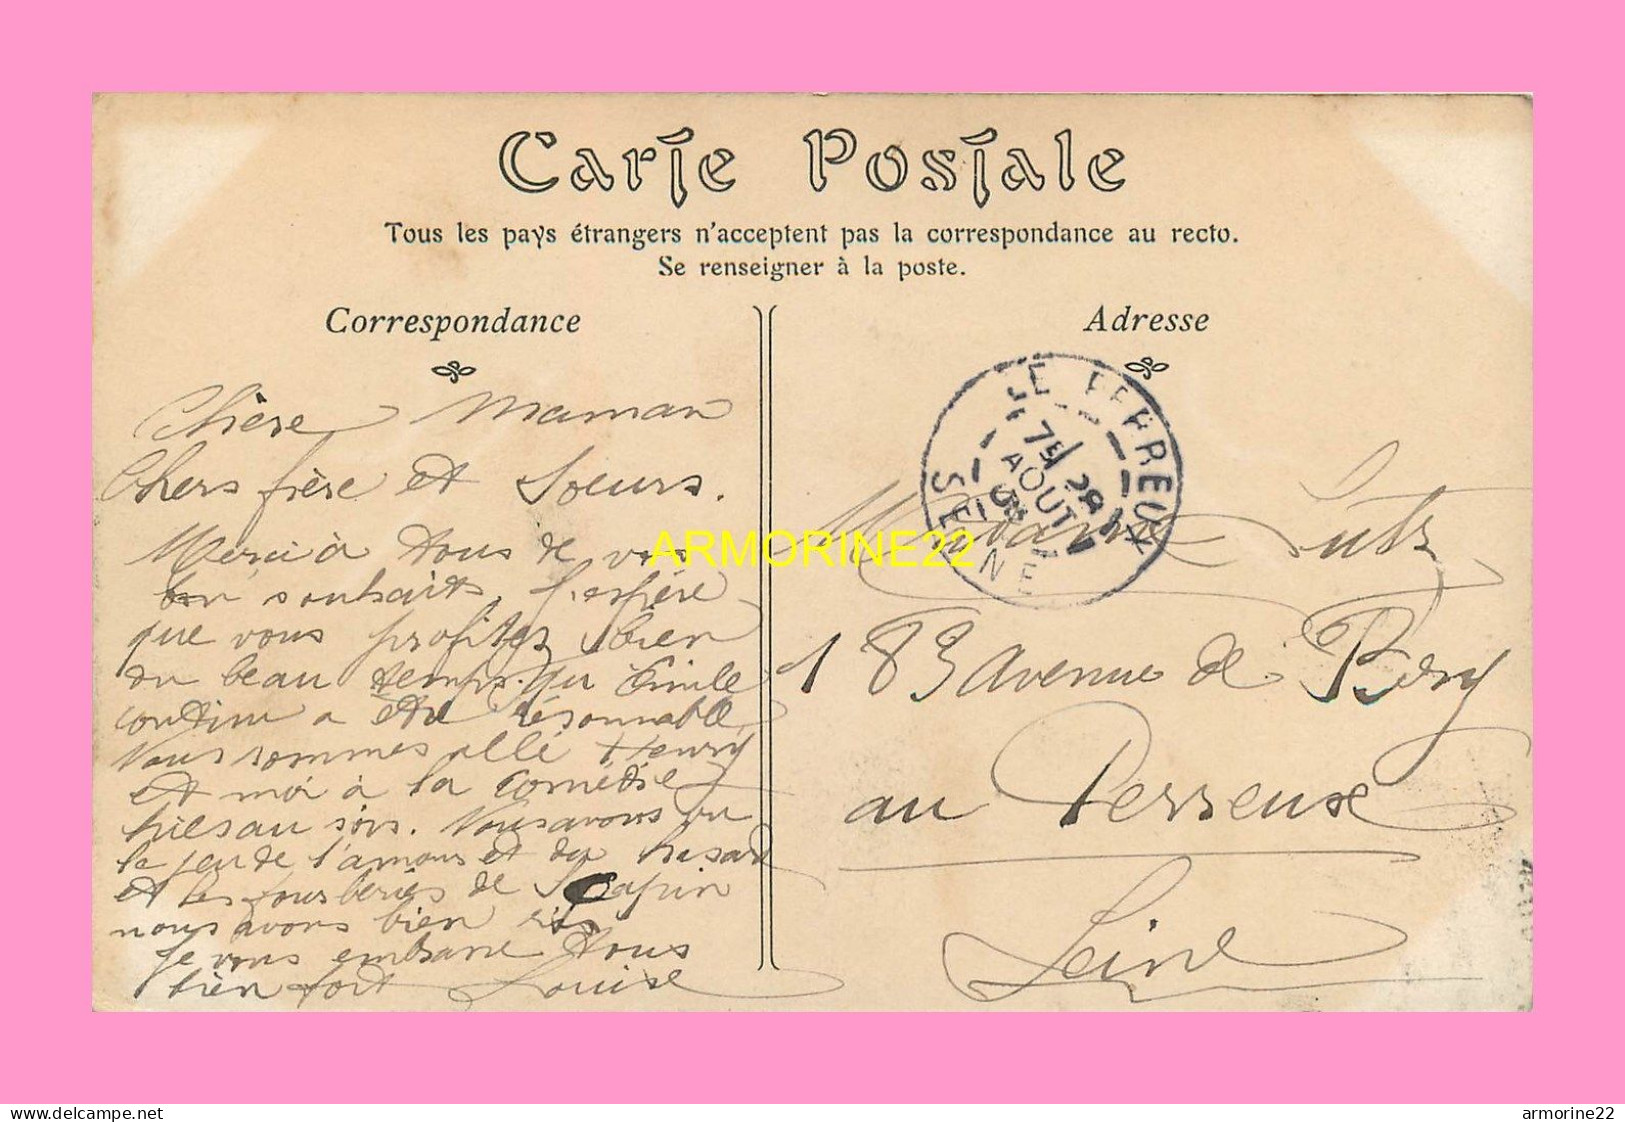 Carte Postale
Tous les pays étrangers n'acceptent pas la correspondance au recto.
Se renseigner à la poste.
Correspondance
Adresse
Chère Maman
Chers frère et Soeurs.
Merci à tous de vos
bon souhaits, J'espère
que vous profitez bien
du beau temps. Qu Emile
continu a être résonnable
Nous sommes allé Henry
et moi à la Comédie
hiesau soir. Nous avons vu
le jeu de l'amour et du hasard
et les fourberies de Scapin
nous avons bien ris
Je vous embrasse tous
bien fort Louise
LE PERREUX
7 28
AOUT
SEINE
Madame Lutz
183 avenue de Bery
au Perreux
Seine
ARMORINE22
www.delcampe.net
armorine22